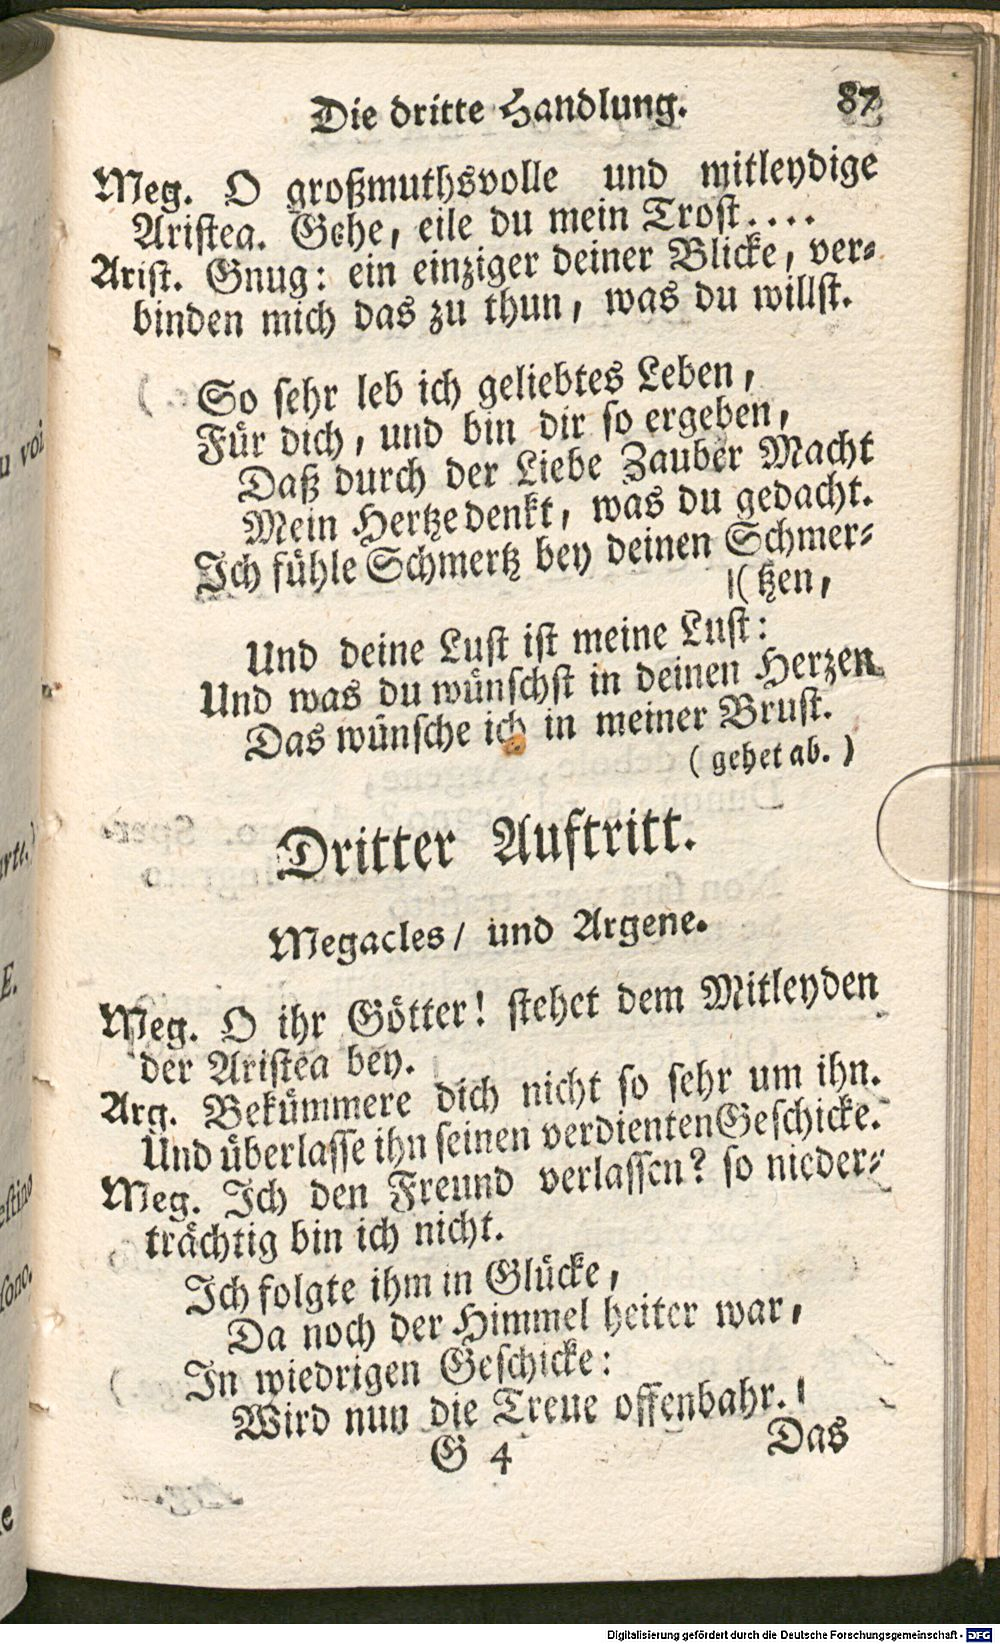 Die dritte Handlung. 87
Meg. O großmuthsvolle und mitleydige
Aristea. Gehe, eile du mein Trost....
Arist. Gnug: ein einziger deiner Blicke, ver-
binden mich das zu thun, was du willst.
So sehr leb ich geliebtes Leben,
Für dich, und bin dir so ergeben,
Daß durch der Liebe Zauber Macht
Mein Hertze denkt, was du gedacht.
Ich fühle Schmertz bey deinen Schmer-
(tzen,
Und deine Lust ist meine Lust:
Und was du wünschst in deinen Herzen
Das wünsche ich in meiner Brust.
(gehet ab.)
Dritter Auftritt.
Megacles/ und Argene.
Meg. O ihr Götter! stehet dem Mitleyden
der Aristea bey.
Arg. Bekümmere dich nicht so sehr um ihn.
Und überlasse ihn seinen verdienten Geschicke.
Meg. Ich den Freund verlassen? so nieder-
trächtig bin ich nicht.
Ich folgte ihm in Glücke,
Da noch der Himmel heiter war,
In wiedrigen Geschicke:
Wird nun die Treue offenbahr.
G 4 Das
Digitalisierung gefördert durch die Deutsche Forschungsgemeinschaft - DFG